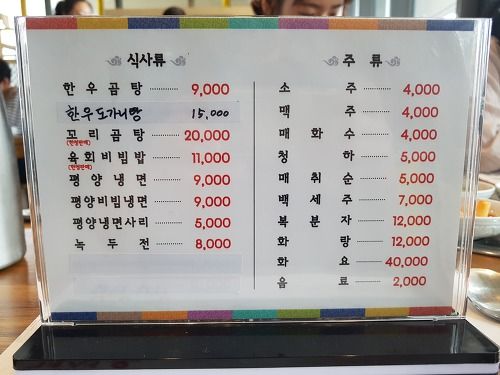 식사류
한우곰탕 ········· 9,000
한우도가니탕 15,000
꼬리곰탕 ········· 20,000
(한정판매)
육회비빔밥 ········· 11,000
(한정판매)
평양냉면 ········· 9,000
평양비빔냉면 ········· 9,000
평양냉면사리 ········· 5,000
녹두전 ········· 8,000
주류
소주 ········· 4,000
맥주 ········· 4,000
매화수 ········· 4,000
청하 ········· 5,000
매취순 ········· 5,000
백세주 ········· 7,000
복분자 ········· 12,000
화랑 ········· 12,000
화요 ········· 40,000
음료 ········· 2,000